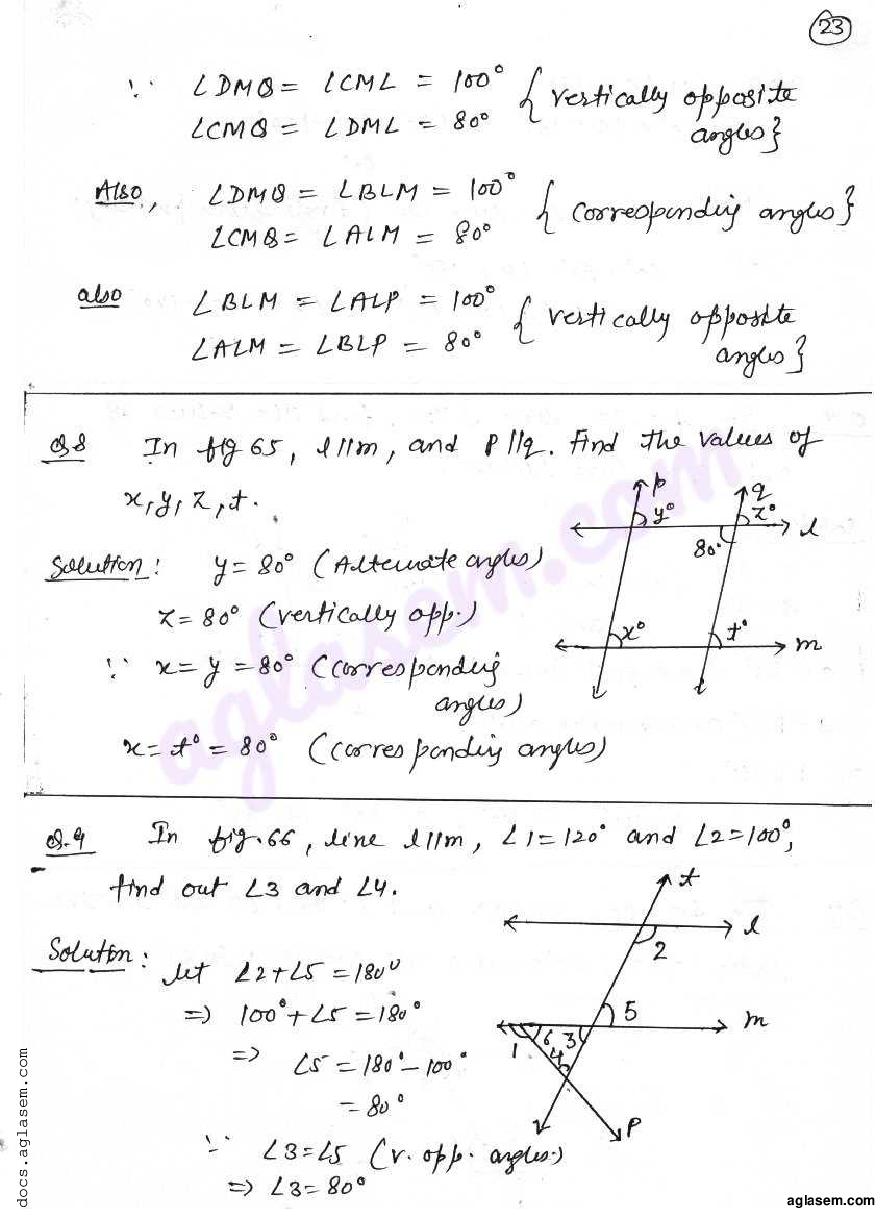 23
∵ ∠DMQ = ∠CML = 100° { vertically opposite
∠CMQ = ∠DML = 80° angles}
Also, ∠DMQ = ∠BLM = 100° { corresponding angles}
∠CMQ = ∠ALM = 80°
also ∠BLM = ∠ALP = 100° { vertically opposite
∠ALM = ∠BLP = 80° angles}
Q8 In fig 65, l||m, and p||q. Find the values of
x, y, z, t.
p q
y° z° l
80°
x° t° m
Solution: y = 80° (Alternate angles)
z = 80° (vertically opp.)
∵ x = y = 80° (corresponding
angles)
x = t° = 80° (corresponding angles)
Q.9 In fig. 66, line l||m, ∠1 = 120° and ∠2 = 100°,
find out ∠3 and ∠4.
t
l
2
5 m
1 6 3
4
p
Solution: let ∠2 + ∠5 = 180°
=> 100° + ∠5 = 180°
=> ∠5 = 180° - 100°
= 80°
∵ ∠3 = ∠5 (v. opp. angles.)
=> ∠3 = 80°
aglasem.com
docs.aglasem.com
aglasem.com